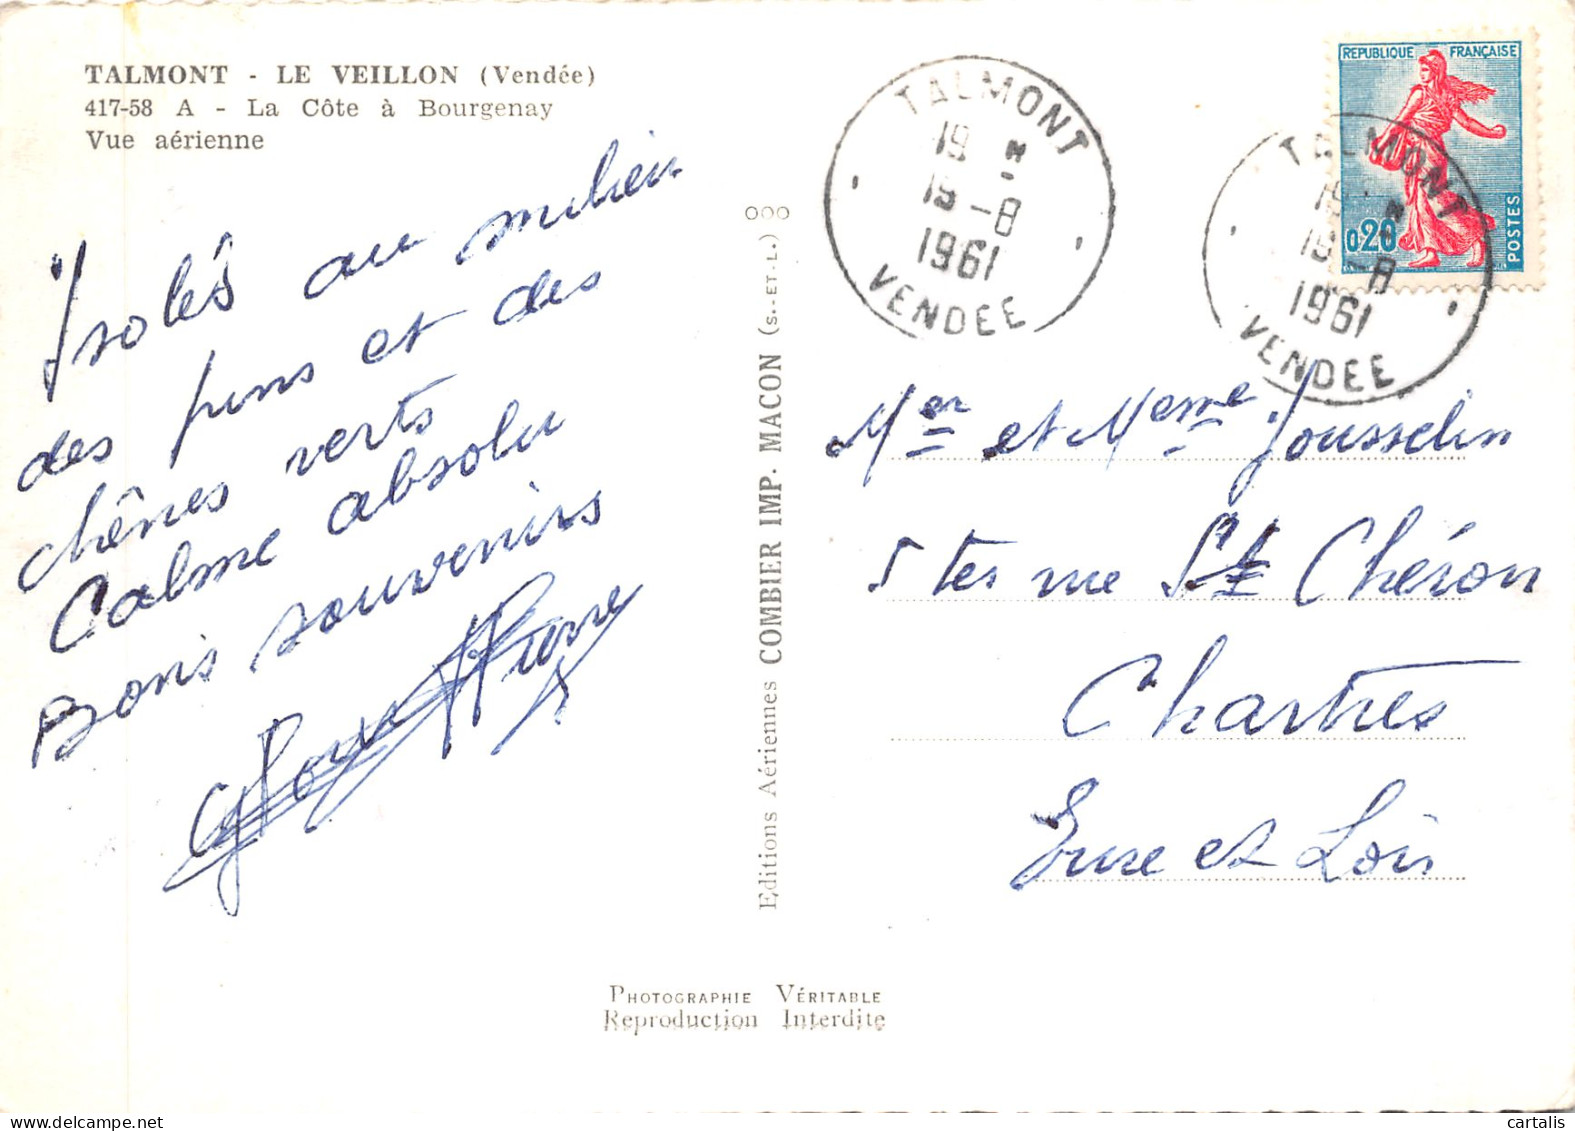 TALMONT - LE VEILLON (Vendée)
417-58 A - La Côte à Bourgenay
Vue aérienne
Isolés au milieu
des pins et des
chênes verts
Calme absolu
Bons souvenirs
Pierre
Editions Aériennes COMBIER IMP. MACON (S.-ET-L.) OOO
TALMONT
19 H
19 -8
1961
VENDEE
REPUBLIQUE FRANÇAISE
0,20
POSTES
TALMONT
19 H
19 -8
1961
VENDEE
Mer et Meme Jousselin
5 ter rue St Chéron
Chartres
Eure et Loir
PHOTOGRAPHIE VÉRITABLE
Reproduction Interdite
cartalis